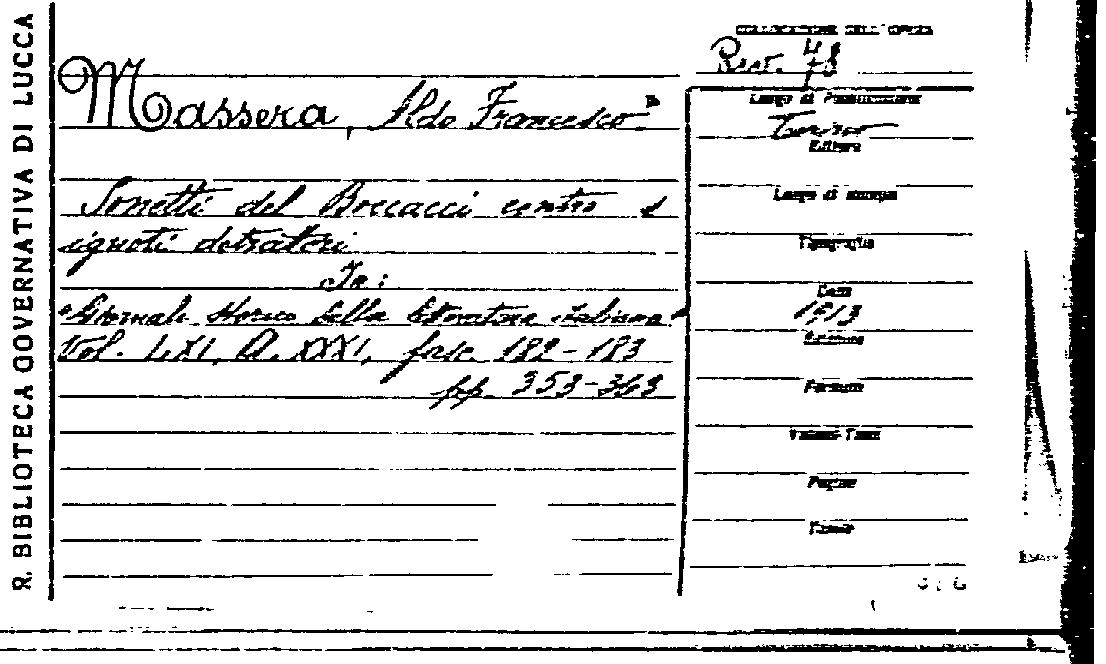 R. BIBLIOTECA GOVERNATIVA DI LUCCA
COLLOCAZIONE DELL'OPERA
Riv. 48
Massera, Aldo Francesco
Luogo di Pubblicazione
Torino
Editore
Sonetti del Boccacci contro
Luogo di stampa
ignoti detrattori
Tipografia
In:
Data
"Giornale storico della letteratura italiana"
1913
Vol. LXI, A. XXXI, fasc. 182-183
pp. 353-363
Formato
Volumi-Tomi
Pagine
Tavole